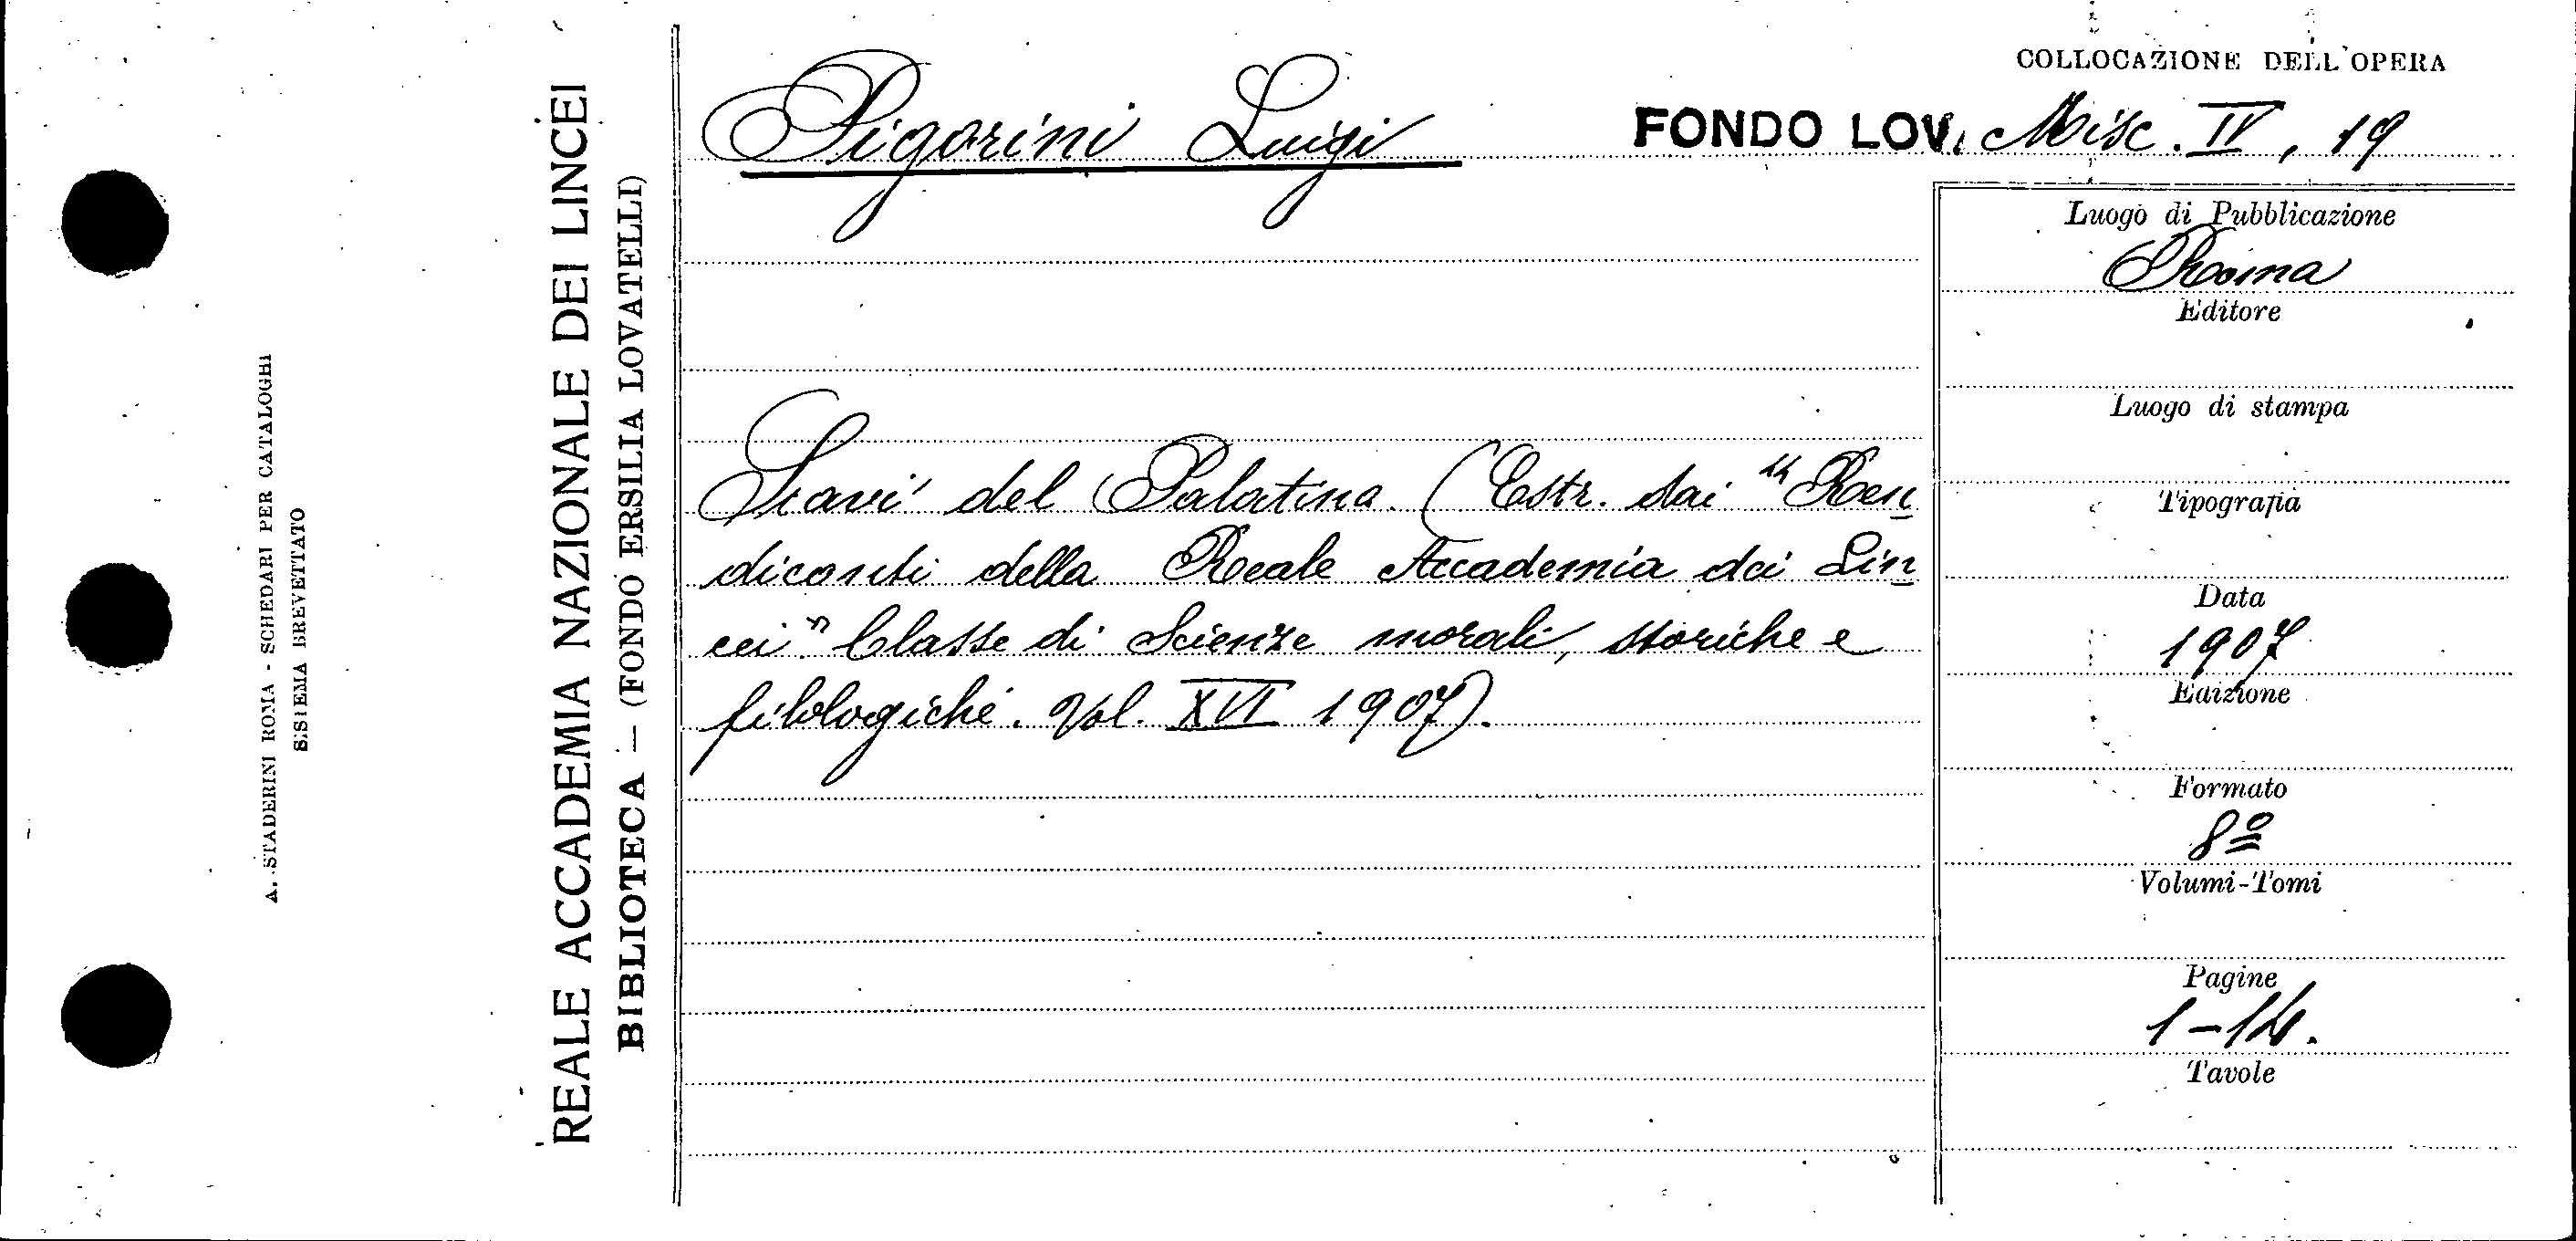 COLLOCAZIONE DELL'OPERA
Pigorini Luigi
FONDO LOV. Misc. IV, 19
REALE ACCADEMIA NAZIONALE DEI LINCEI
BIBLIOTECA — (FONDO ERSILIA LOVATELLI)
A. STADERINI ROMA - SCHEDARI PER CATALOGHI
SISTEMA BREVETTATO
Scavi del Palatino. (Estr. dai "Ren
diconti della Reale Accademia dei Lin
cei" Classe di Scienze morali, storiche e
filologiche. Vol. XVI 1907).
Luogo di Pubblicazione
Roma
Editore
Luogo di stampa
Tipografia
Data
1907
Edizione
Formato
8º
Volumi-Tomi
Pagine
1-14.
Tavole